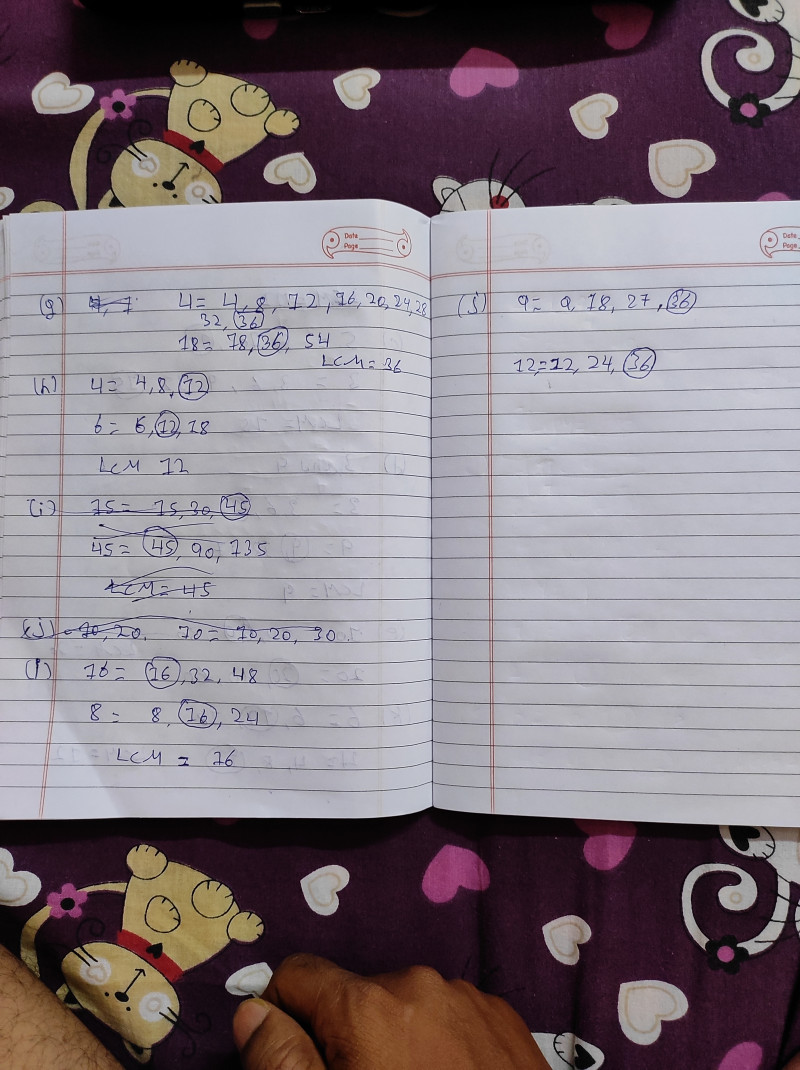 Date
Page
(g) 4, 7 4= 4, 8, 12, 16, 20, 24, 28
32, 36
18= 18, 36, 54
LCM = 36
(h) 4= 4, 8, 12
6= 6, 12, 18
LCM 12
(i) 15= 15, 30, 45
45= 45, 90, 135
LCM = 45
(j) 10, 20, 10= 10, 20, 30
(i) 16= 16, 32, 48
8= 8, 16, 24
LCM = 16
Date
Page
(j) 9= 9, 18, 27, 36
12= 12, 24, 36